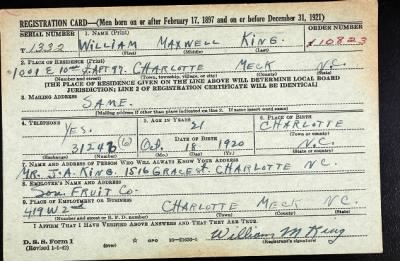 REGISTRATION CARD—(Men born on or after February 17, 1897 and on or before December 31, 1921)
SERIAL NUMBER 1. NAME (Print) ORDER NUMBER
T-1332 WILLIAM MAXWELL KING. 10823
(First) (Middle) (Last)
2. PLACE OF RESIDENCE (Print)
1001 E 10th St. APT 97. CHARLOTTE MECK N.C.
(Number and street) (Town, township, village, or city) (County) (State)
[THE PLACE OF RESIDENCE GIVEN ON THE LINE ABOVE WILL DETERMINE LOCAL BOARD
JURISDICTION; LINE 2 OF REGISTRATION CERTIFICATE WILL BE IDENTICAL]
3. MAILING ADDRESS
SAME.
[Mailing address if other than place indicated on line 2. If same insert word same]
4. TELEPHONE 5. AGE IN YEARS 6. PLACE OF BIRTH
YES. 21 CHARLOTTE
DATE OF BIRTH (Town or county)
31246 Oct. 18 1920 N.C.
(Exchange) (Number) (Mo.) (Day) (Yr.) (State or country)
7. NAME AND ADDRESS OF PERSON WHO WILL ALWAYS KNOW YOUR ADDRESS
MR. J.A. KING. 1516 GRACE St. CHARLOTTE NC.
8. EMPLOYER'S NAME AND ADDRESS
FRUIT Co.
9. PLACE OF EMPLOYMENT OR BUSINESS
419 W 2nd CHARLOTTE MECK NC
(Number and street or R. F. D. number) (Town) (County) (State)
I AFFIRM THAT I HAVE VERIFIED ABOVE ANSWERS AND THAT THEY ARE TRUE.
D. S. S. Form 1
(Revised 1-1-42) (over) GPO 16—21630-1 William M King
(Registrant's signature)